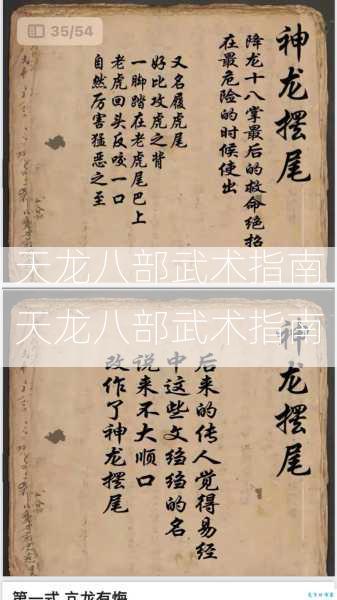 35/54
神龙摆尾
降龙十八掌最后的救命绝招
在最危险的时候使出
又名履虎尾
好比攻虎之背
一脚踏在老虎尾巴上
老虎回头反咬一口
自然厉害猛恶之至
天龙八部武术指南
天龙八部武术指南
神龙摆尾
后来的传人觉得易经
中这些文绉绉的名
说来不大顺口
改作了神龙摆尾
第一式 亢龙有悔